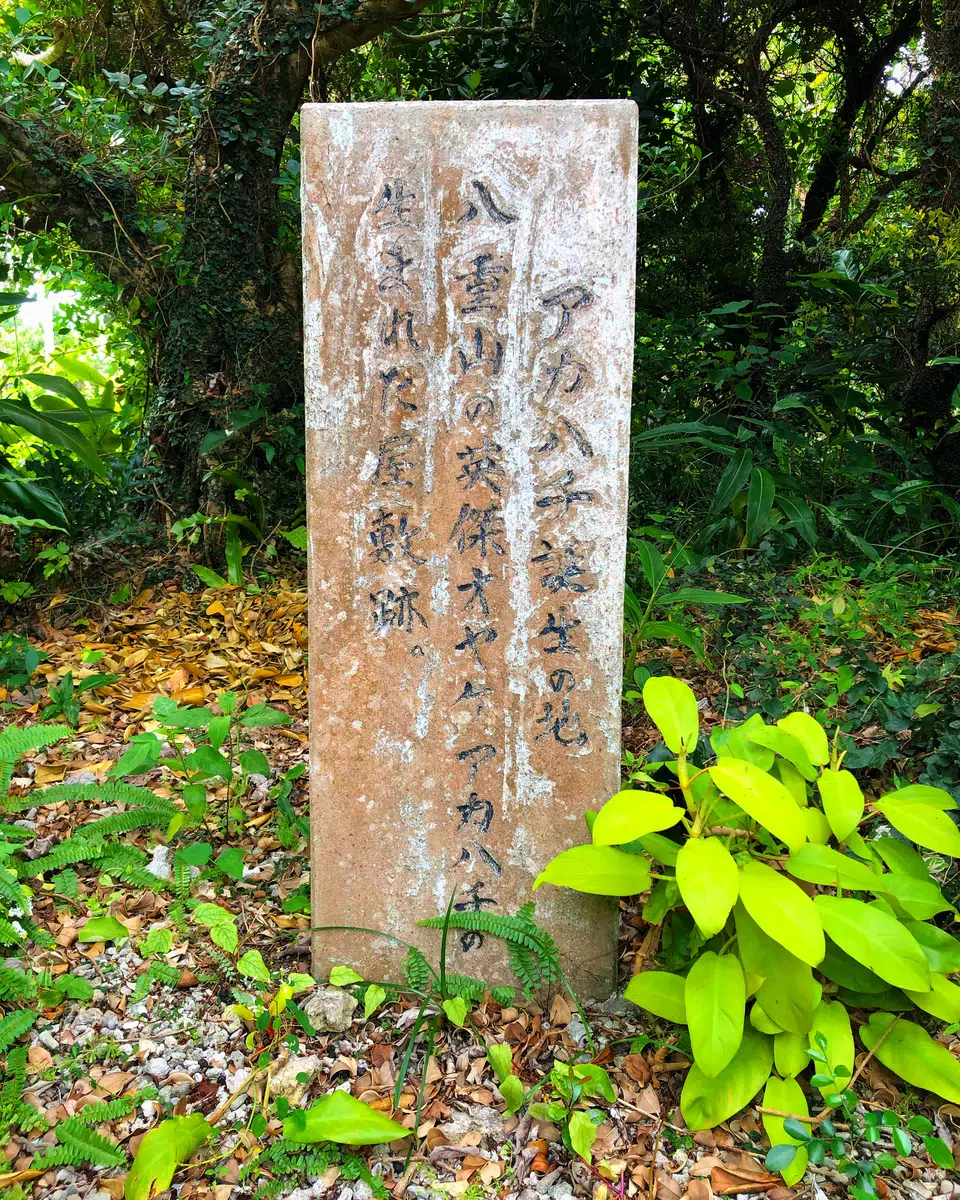 アカハチ誕生の地
八重山の英傑オヤケアカハチの
生まれた屋敷跡。